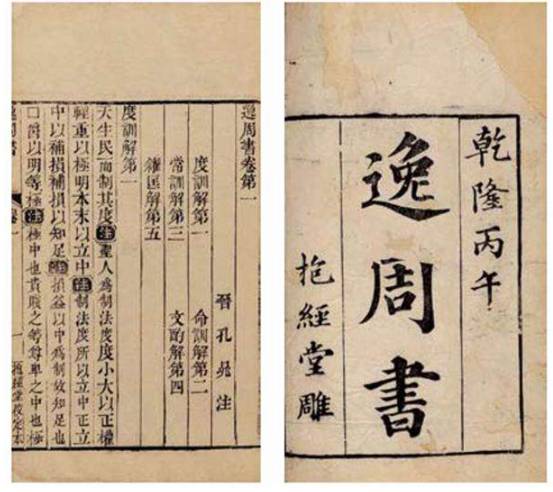 乾隆丙午
逸周書
抱經堂雕
逸周書卷第一
晉孔晁注
度訓解第一　命訓解第二
常訓解第三　文酌解第四
糴匡解第五
度訓解第一
天生民而制其度注聖人爲制法度度小大以正權
輕重以極明本末以立中注制法度所以立中正立
中以補損補損以知足注損益以中爲制故知足也
口爵以明等極注極中也貴賤之等尊卑之中也極
逸周書　卷一　一　抱經堂校定本